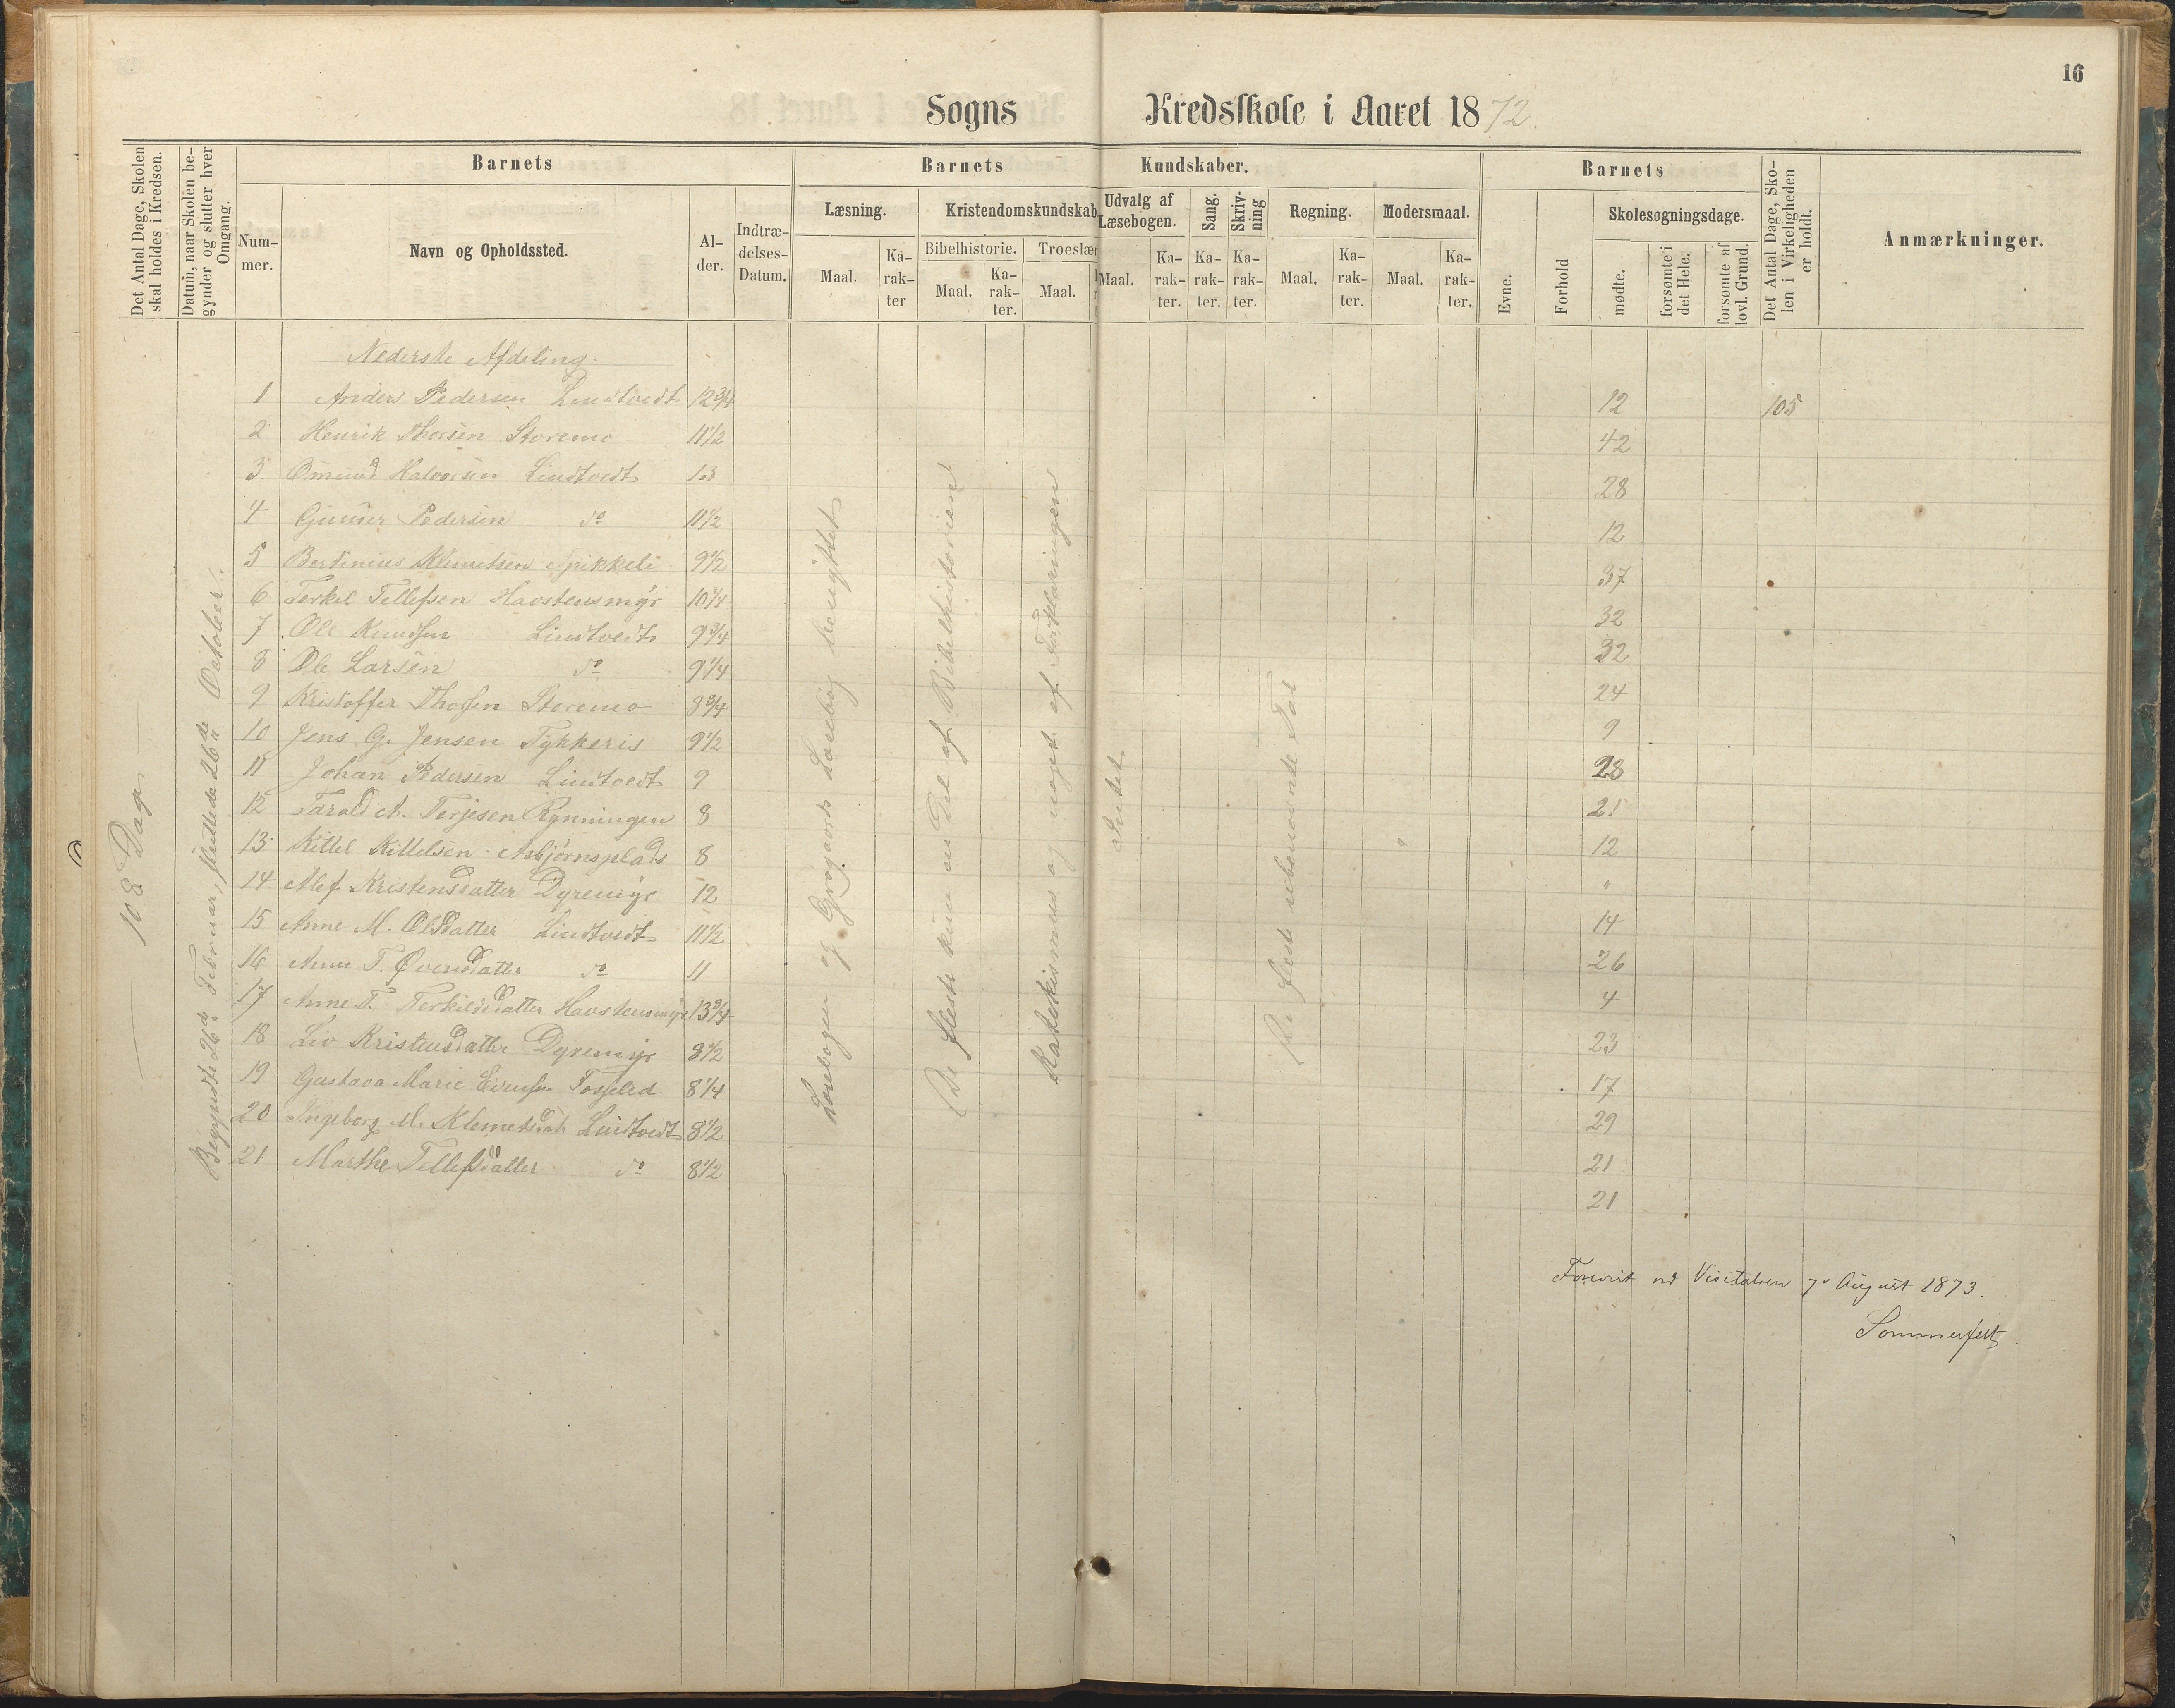 16
Sogns Kredsskole i Aaret 1872.
Det Antal Dage, Skolen skal holdes i Kredsen.
Datum, naar Skolen begynder og slutter hver Omgang.
Barnets
Nummer.
Navn og Opholdssted.
Alder.
Indtrædelses-Datum.
Barnets Kundskaber.
Læsning.
Maal.
Karakter
Kristendomskundskab
Bibelhistorie.
Maal.
Karakter.
Troeslær
Maal.
Udvalg af Læsebogen.
Maal.
Karakter.
Sang.
Karakter.
Skrivning
Karakter.
Regning.
Maal.
Karakter.
Modersmaal.
Maal.
Karakter.
Barnets
Evne.
Forhold
Skolesøgningsdage.
mødte.
forsømte i det Hele.
forsømte af lovl. Grund.
Det Antal Dage, Skolen i Virkeligheden er holdt.
Anmærkninger.
108 Dage
Begyndte 26de Februar, sluttede 26de October.
Nederste Afdeling.
1 Anders Pedersen Lindtvedt 12 3/4 12 105
2 Henrik Thorsen Storemo 11 1/2 42
3 Omund Halvorsen Lindtvedt 13 28
4 Gunner Pedersen do 11 1/2 12
5 Bertinius Klemetsen Spikkeli 9 1/2 37
6 Terkel Tellefsen Havstensmyr 10 1/4 32
7 Ole Knudsen Lindtvedt 9 3/4 32
8 Ole Larsen do 9 1/4 24
9 Kristoffer Thorsen Storemo 8 3/4 9
10 Jens G. Jensen Tykkeris 9 1/2 28
11 Johan Pedersen Lindtvedt 9 21
12 Tarald A. Terjesen Rynningen 8 12
13 Kittel Kittelsen Asbjørnsplads 8 "
14 Alef Kristensdatter Dyremyr 12 14
15 Anne M. Olsdatter Lindtvedt 11 1/2 26
16 Anne T. Øvensdatter do 11 4
17 Anne T. Terkildsdatter Havstensmyr 13 3/4 23
18 Liv Kristensdatter Dyremyr 8 1/2 17
19 Gustava Marie Evensen Fosselid 8 1/4 29
20 Ingeborg M. Klemetsdat Lindtvedt 8 1/2 21
21 Marthe Tellefsdatter do 8 1/2 21
Læsebogen og Grøgaards Læsebog benyttet
De fleste kun en Del af Bibelhistorien
Katekismus og noget af Forklaringen
Intet
De fleste ubenævnte Tal
Forevist ved Visitatsen 7de August 1873.
Sommerfelt.